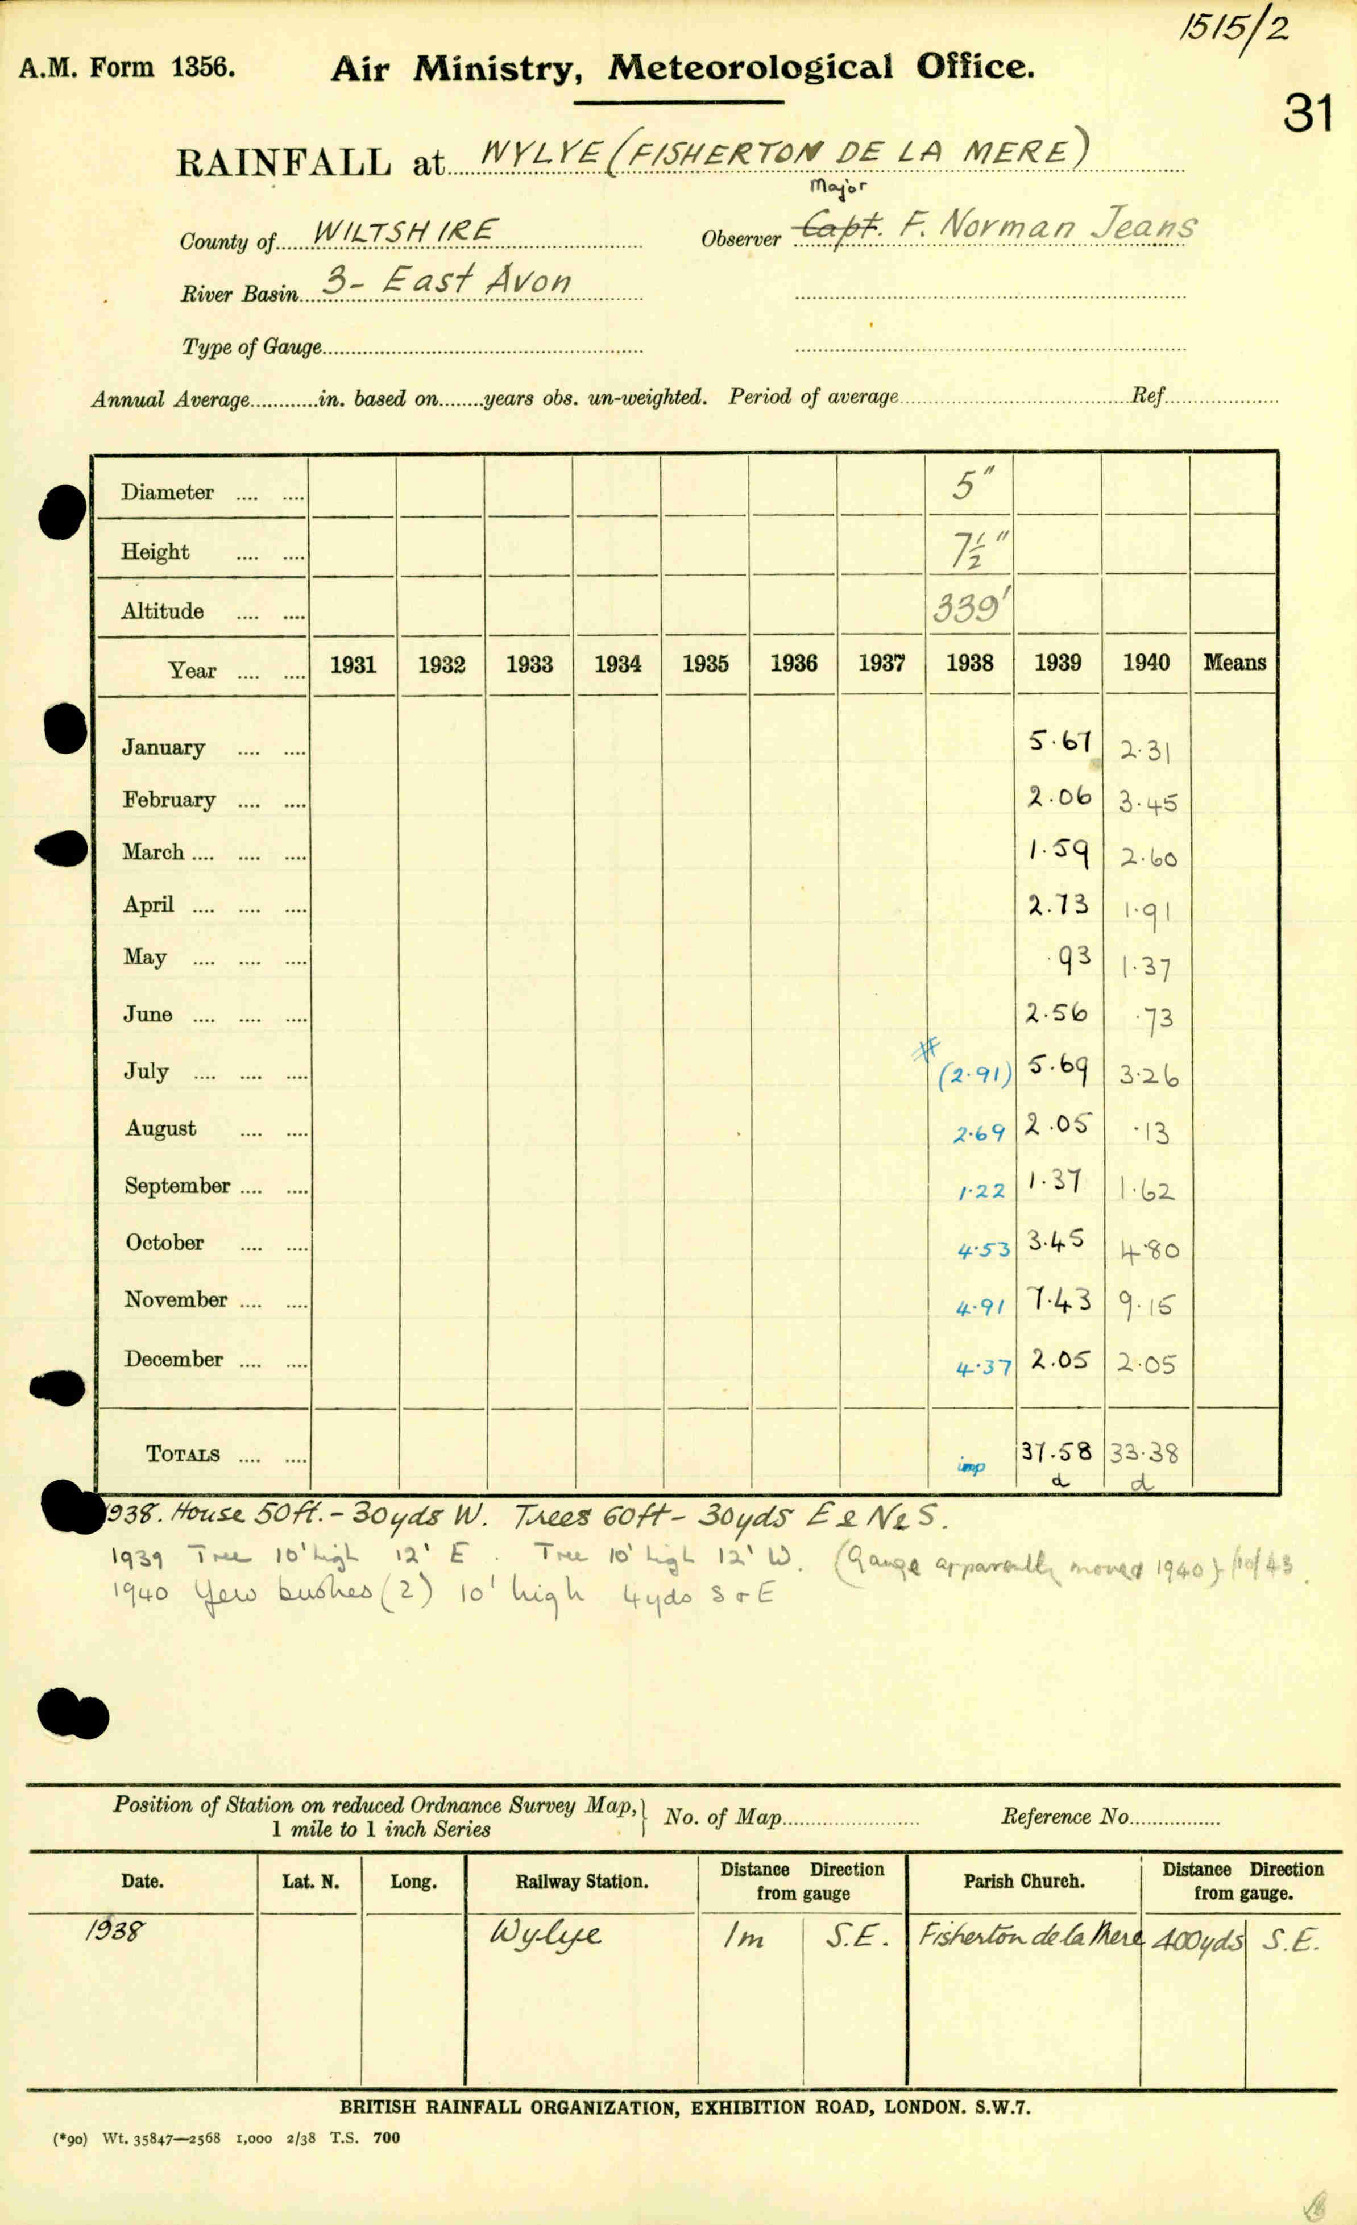 1515/2
A.M. Form 1356. Air Ministry, Meteorological Office.
31
RAINFALL at WYLYE (FISHERTON DE LA MERE)
Major
County of WILTSHIRE Observer Capt. F. Norman Jeans
River Basin 3- East Avon
Type of Gauge
Annual Average in. based on years obs. un-weighted. Period of average Ref.
Diameter 5"
Height 7½"
Altitude 339'
Year 1931 1932 1933 1934 1935 1936 1937 1938 1939 1940 Means
January 5.67 2.31
February 2.06 3.45
March 1.59 2.60
April 2.73 1.91
May .93 1.37
June 2.56 .73
#
July (2.91) 5.69 3.26
August 2.69 2.05 .13
September 1.22 1.37 1.62
October 4.53 3.45 4.80
November 4.91 7.43 9.15
December 4.37 2.05 2.05
TOTALS imp 37.58 33.38
d d
1938. House 50ft. - 30yds W. Trees 60ft - 30yds E & N & S.
1939 Tree 10' high 12' E. Tree 10' high 12' W. (Gauge apparently moved 1940)
1940 Yew bushes (2) 10' high 4yds S & E
Position of Station on reduced Ordnance Survey Map, } No. of Map Reference No.
1 mile to 1 inch Series
Date. Lat. N. Long. Railway Station. Distance Direction from gauge Parish Church. Distance Direction from gauge.
1938 Wylye 1m S.E. Fisherton de la Mere 400yds S.E.
BRITISH RAINFALL ORGANIZATION, EXHIBITION ROAD, LONDON. S.W.7.
(*90) Wt. 35847—2568 1,000 2/38 T.S. 700